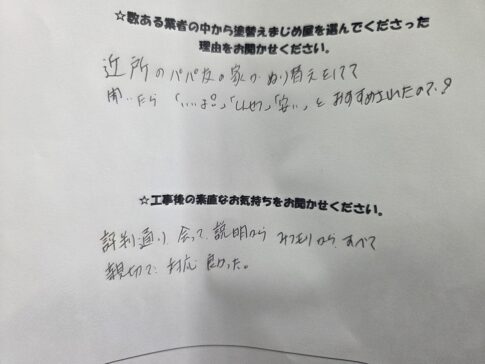 ☆数ある業者の中から塗替えまじめ屋を選んでくださった
理由をお聞かせください。
近所のパパ友の家がぬり替えをしてて
聞いたら「いいよ!」「しんせつ」「安い」とおすすめされたので。
☆工事後の素直なお気持ちをお聞かせください。
評判通り、会って、説明から みつもりから すべて
親切で、対応 良かった。